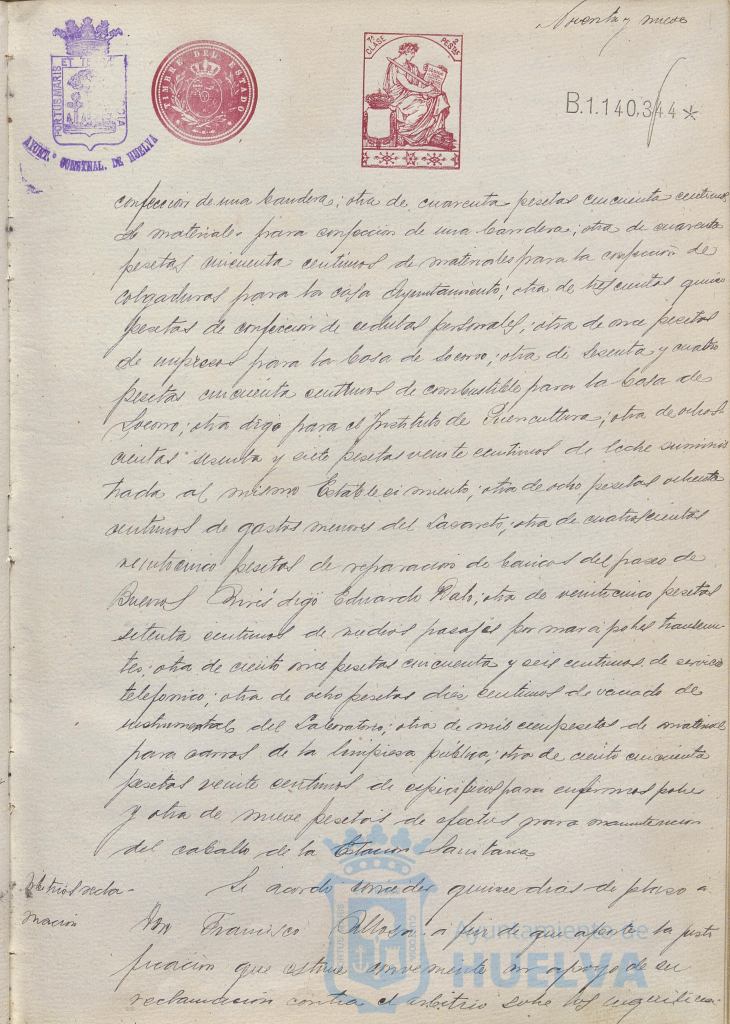 Noventa y nueve
PORTUS MARIS ET TERRÆ CUSTODIA
AYUNT.º CONSTNAL. DE HUELVA
TIMBRE DEL ESTADO
7ª CLASE 2 PESETAS
B.1.140,344 *
confeccion de una bandera; otra de cuarenta pesetas cincuenta centimos
de materiales para confeccion de una bandera; otra de cuarenta
pesetas cincuenta centimos de materiales para la confeccion de
colgaduras para la casa Ayuntamiento; otra de trescientas quince
pesetas de confeccion de cedulas personales; otra de once pesetas
de impresos para la Casa de Socorro; otra de sesenta y cuatro
pesetas cincuenta centimos de combustible para la Casa de
Socorro, otra digo para el Instituto de Puericultura; otra de ochos
cientas sesenta y siete pesetas veinte centimos de leche suminis
trada al mismo Establecimiento; otra de ocho pesetas ochenta
centimos de gastos menores del Lazareto; otra de cuatroscientas
veinticinco pesetas de reparacion de bancos del paseo de
Buenos Aires digo Eduardo Dato; otra de veinticinco pesetas
setenta centimos de medios pasajes por mar a pobres transeun-
tes; otra de ciento once pesetas cincuenta y seis centimos de servicio
telefonico; otra de ocho pesetas diez centimos de vaciado de
instrumental del Laboratorio; otra de mil cien pesetas de material
para carros de la limpieza publica; otra de ciento cincuenta
pesetas veinte centimos de especificos para enfermos pobres
y otra de nueve pesetas de efectos para manutencion
del caballo de la Estacion Sanitaria
Arbitrios recla-
macion
Se acordó conceder quince dias de plazo a
Don Francisco a fin de que aporte la justi
ficacion que estime conveniente en apoyo de su
reclamacion contra el arbitrio sobre los inquilina-
Ayuntamiento de
HUELVA